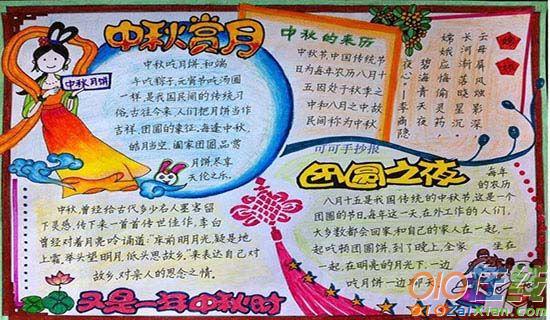 中秋赏月
中秋月饼
中秋吃月饼,和端
午吃粽子,元宵节吃汤圆
一样,是我国民间的传统习
俗,古往今来,人们把月饼当作
吉祥、团圆的象征,每逢中秋,
皓月当空,阖家团圆,品赏
月饼尽享
天伦之乐。
中秋的来历
中秋节,中国传统节
日为每年农历八月十
五因处于秋季之
中和八月之中故
民间称为中秋
嫦娥
云母屏风烛影深
长河渐落晓星沉
嫦娥应悔偷灵药
碧海青天夜
夜心——李商隐
可可手抄报
团圆之夜
每年
的农历
八月十五是我国传统的中秋节,这是一个
团圆的节日,每年这一天,在外工作的人们,
大多数都会回家,和自己的家人在一起,一
起吃顿团圆饼,到了晚上,全家
坐在一
起,在明亮的月光下,一边
吃月饼一边聊天
中秋,曾经给古代多少名人墨客留
下灵感,传下来一首首传世佳作,李白
曾经对着月亮吟诵道:"床前明月光,疑是地
上霜,举头望明月,低头思故乡。"来表达自己对
故乡,对亲人的思念之情。
又是一年中秋时
在线
xiezaixian.com